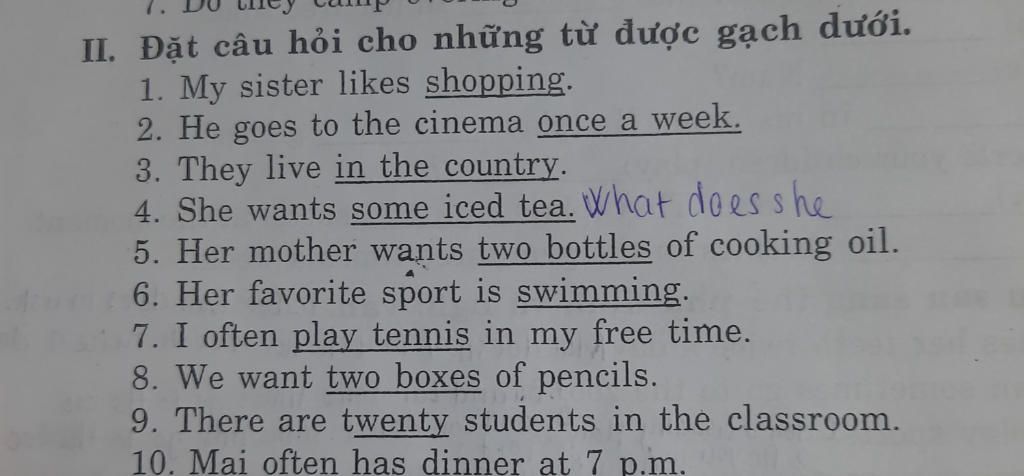 7. Do they camp
II. Đặt câu hỏi cho những từ được gạch dưới.
1. My sister likes shopping.
2. He goes to the cinema once a week.
3. They live in the country.
4. She wants some iced tea. What does she
5. Her mother wants two bottles of cooking oil.
6. Her favorite sport is swimming.
7. I often play tennis in my free time.
8. We want two boxes of pencils.
9. There are twenty students in the classroom.
10. Mai often has dinner at 7 p.m.